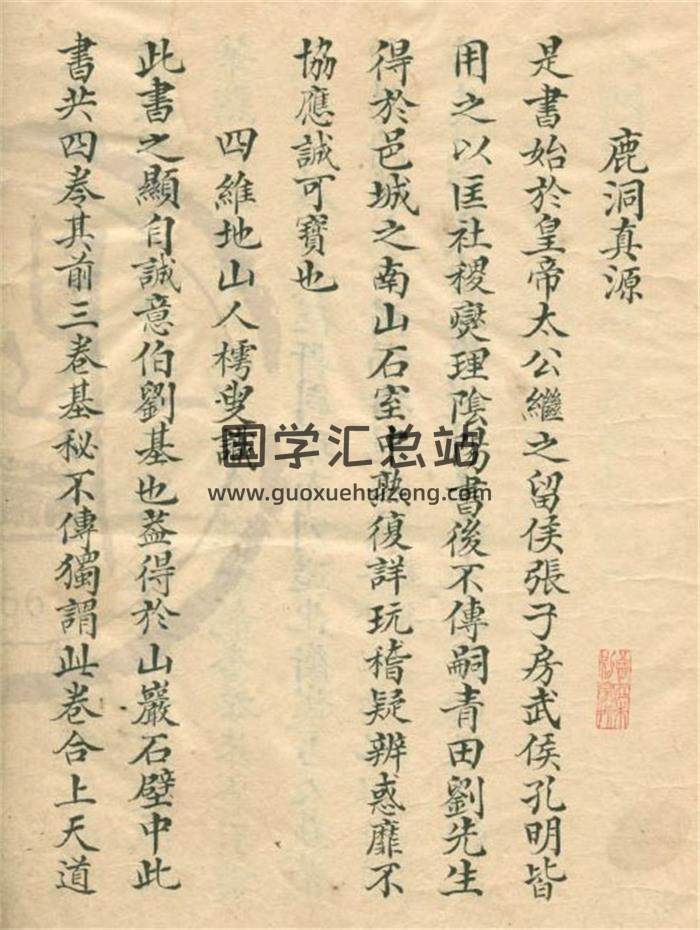 鹿洞真源
是書始於皇帝太公繼之留侯張子房武侯孔明皆
用之以匡社稷燮理陰陽書後不傳嗣青田劉先生
得於邑城之南山石室中熟復詳玩稽疑辨惑靡不
協應誠可寶也
四維地山人樗叟識
此書之顯自誠意伯劉基也葢得於山巖石壁中此
書共四卷其前三卷基秘不傳獨謂此卷合上天道
国学汇总站
www.guoxuehuizong.com